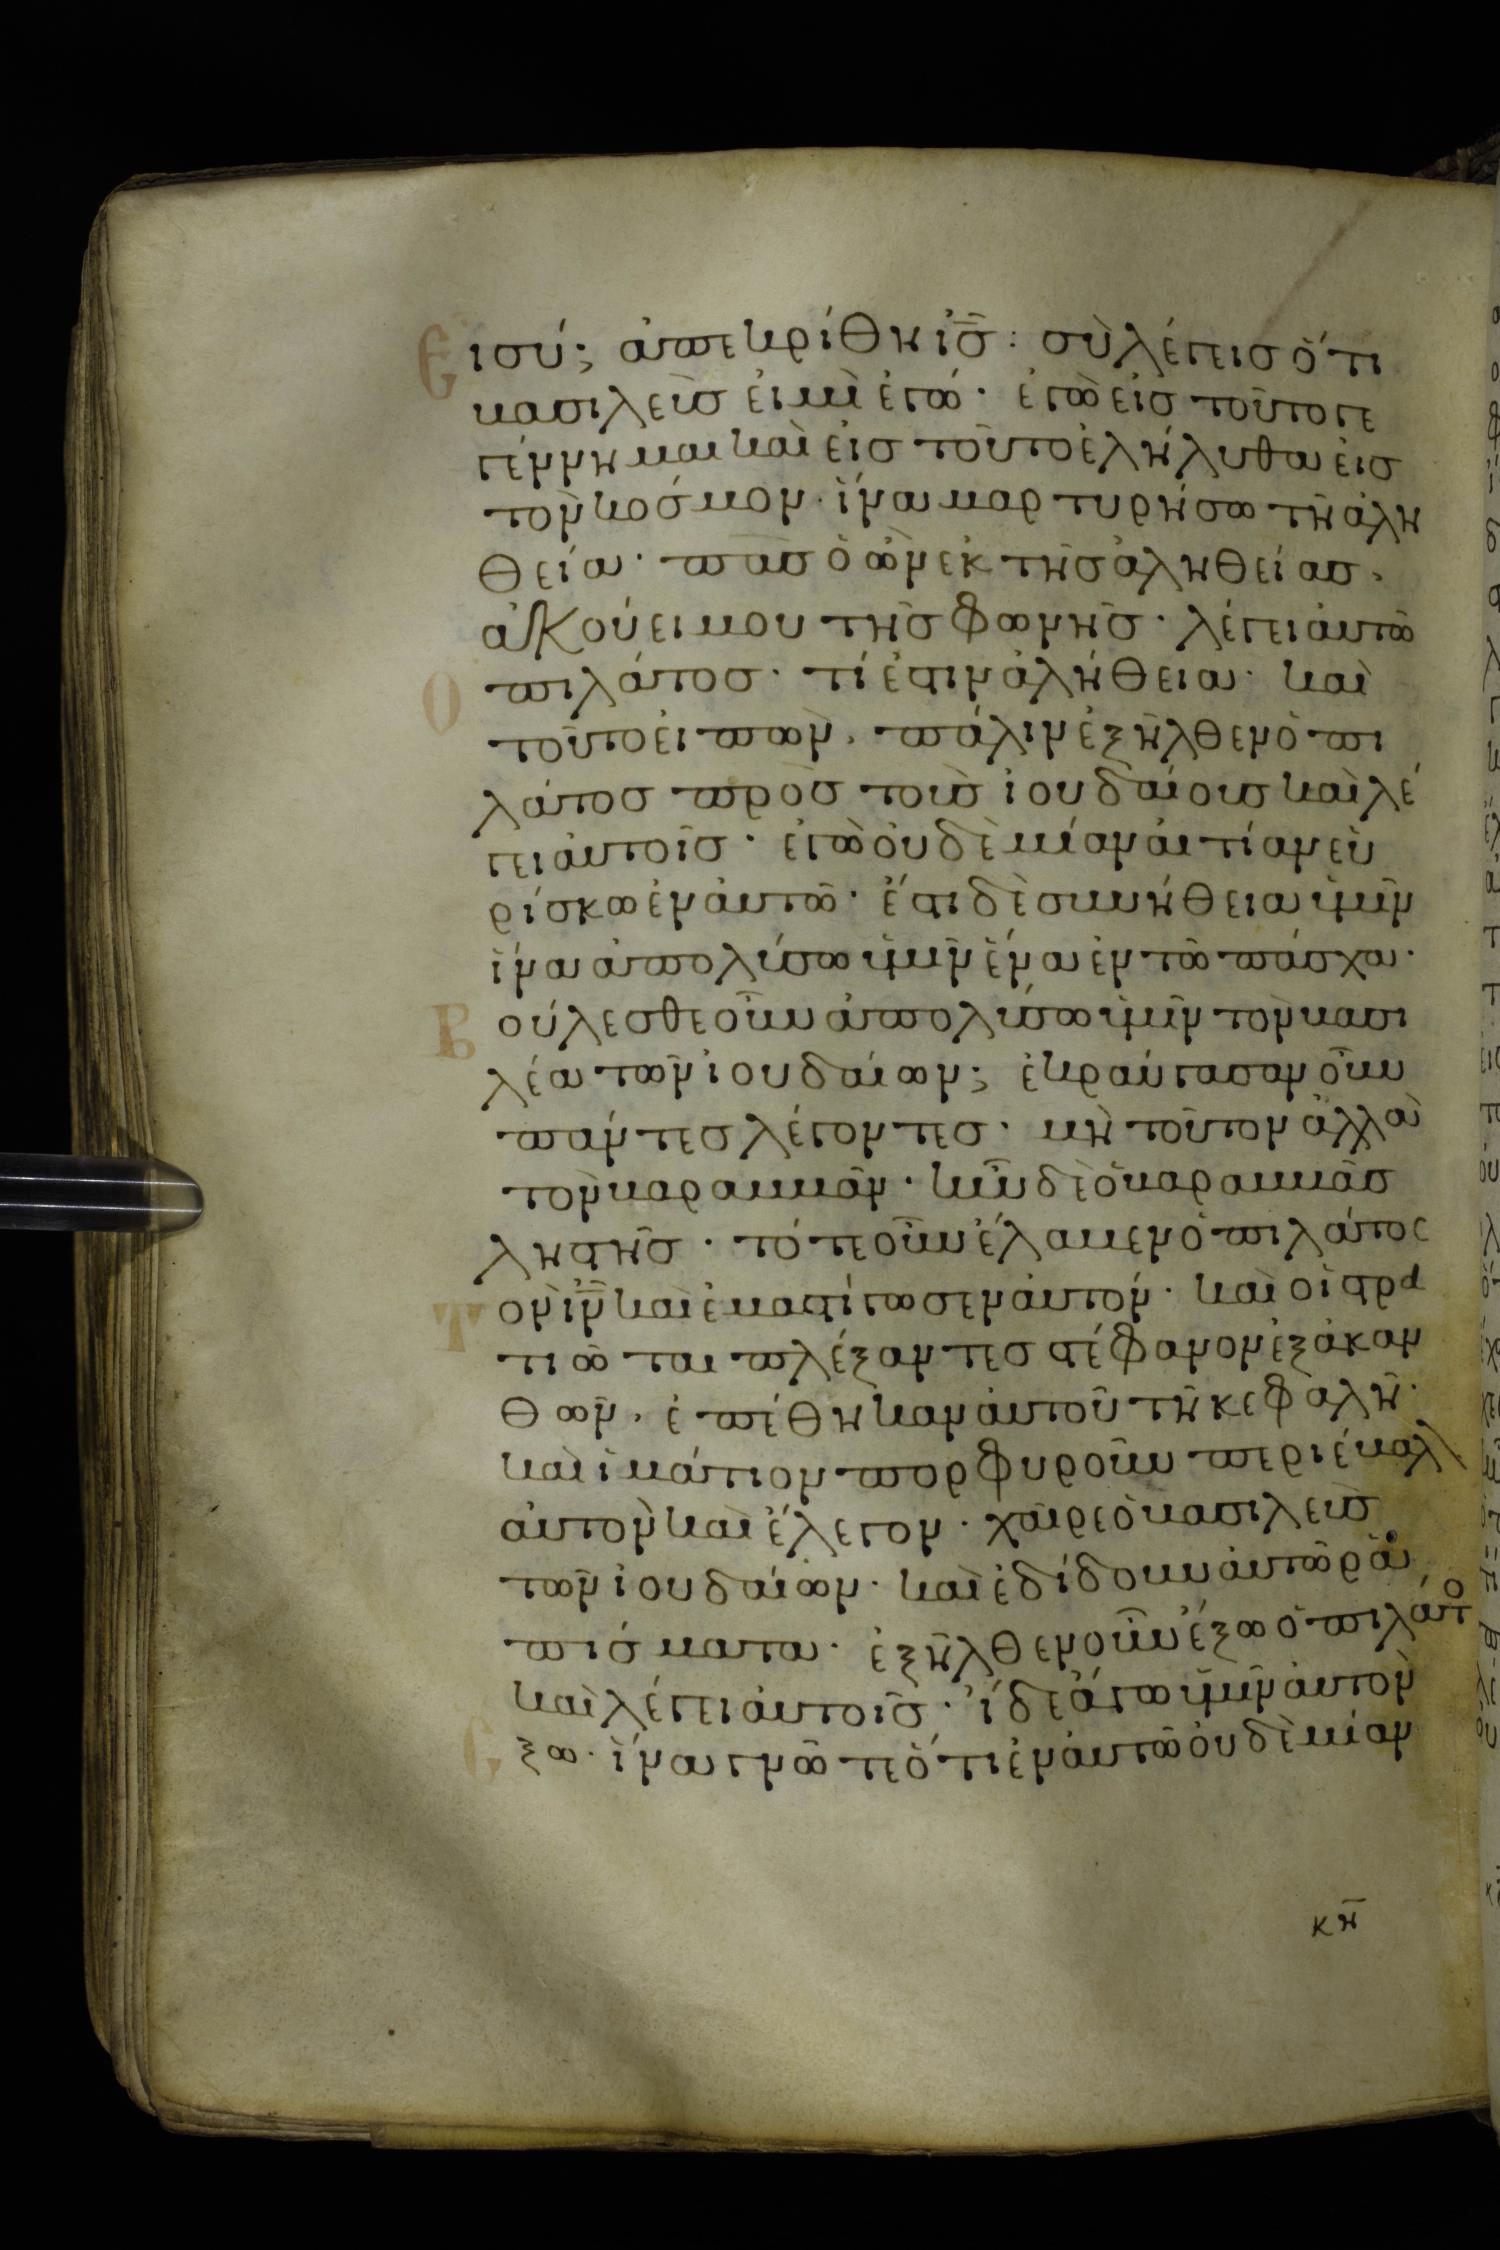 Εἰ σύ; ἀπεκρίθη ἰς̅: σὺ λέγεις ὅτι
βασιλεὺς εἰμὶ ἐγώ· ἐγὼ εἰς τοῦτο γε
γέννημαι καὶ εἰς τοῦτο ἐλήλυθα εἰς
τὸν κόσμον· ἵνα μαρτυρήσω τῆ ἀλη
θεία· πᾶς ὁ ὢν ἐκ τῆς ἀληθείας,
ἀκούει μου τῆς φωνῆς· λέγει αὐτῶ
Ὁ πιλάτος· τί ἐστιν ἀλήθεια· καὶ
τοῦτο εἰπὼν, πάλιν ἐξῆλθεν ὁ πι
λάτος πρὸς τοὺς ἰουδαίους καὶ λέ
γει αὐτοῖς· ἐγὼ οὐδὲ μίαν αἰτίαν εὑ
ρίσκω ἐν αὐτῶ· ἔστι δὲ συνήθεια ὑμῖν
ἵνα ἀπολύσω ὑμῖν ἕνα ἐν τῶ πάσχα·
Βούλεσθε οὖν ἀπολύσω ὑμῖν τὸν βασι
λέα τῶν ἰουδαίων; ἐκραύγασαν οὖν
πάντες λέγοντες· μὴ τοῦτον ἀλλὰ
τὸν βαραββᾶν· ἦν δὲ ὁ βαραββᾶς
ληστῆς· τότε οὖν ἔλαβεν ὁ πιλάτος
Τὸν ἰν̅ καὶ ἐμαστίγωσεν αὐτόν· καὶ οἱ στρα
τιῶται πλέξαντες στέφανον ἐξ ἀκαν
θῶν, ἐπέθηκαν αὐτοῦ τῆ κεφαλῆ·
καὶ ἱμάτιον πορφυροῦν περιέβαλ
αὐτὸν καὶ ἔλεγον· χαῖρε ὁ βασιλεὺς
τῶν ἰουδαίων· καὶ ἐδίδουν αὐτῶ ρα
πίσματα· ἐξῆλθεν οὖν ἔξω ὁ πιλάτο
καὶ λέγει αὐτοῖς· ἴδε ἄγω ὑμῖν αὐτὸν
Ἔξω· ἵνα γνῶτε ὅτι ἐν αὐτῶ οὐδὲ μίαν
κη̅